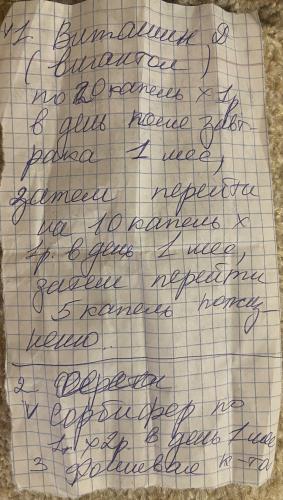 √1. Витамин D
(вигантол)
по 20 капель х 1р.
в день после завт-
рака 1 мес,
затем перейти
на 10 капель х
1р. в день 1 мес,
затем перейти
5 капель пожиз-
ненно.
2.
√ Сорбифер по
1т х 2р. в день 1 мес
3 Фолиевая к-та